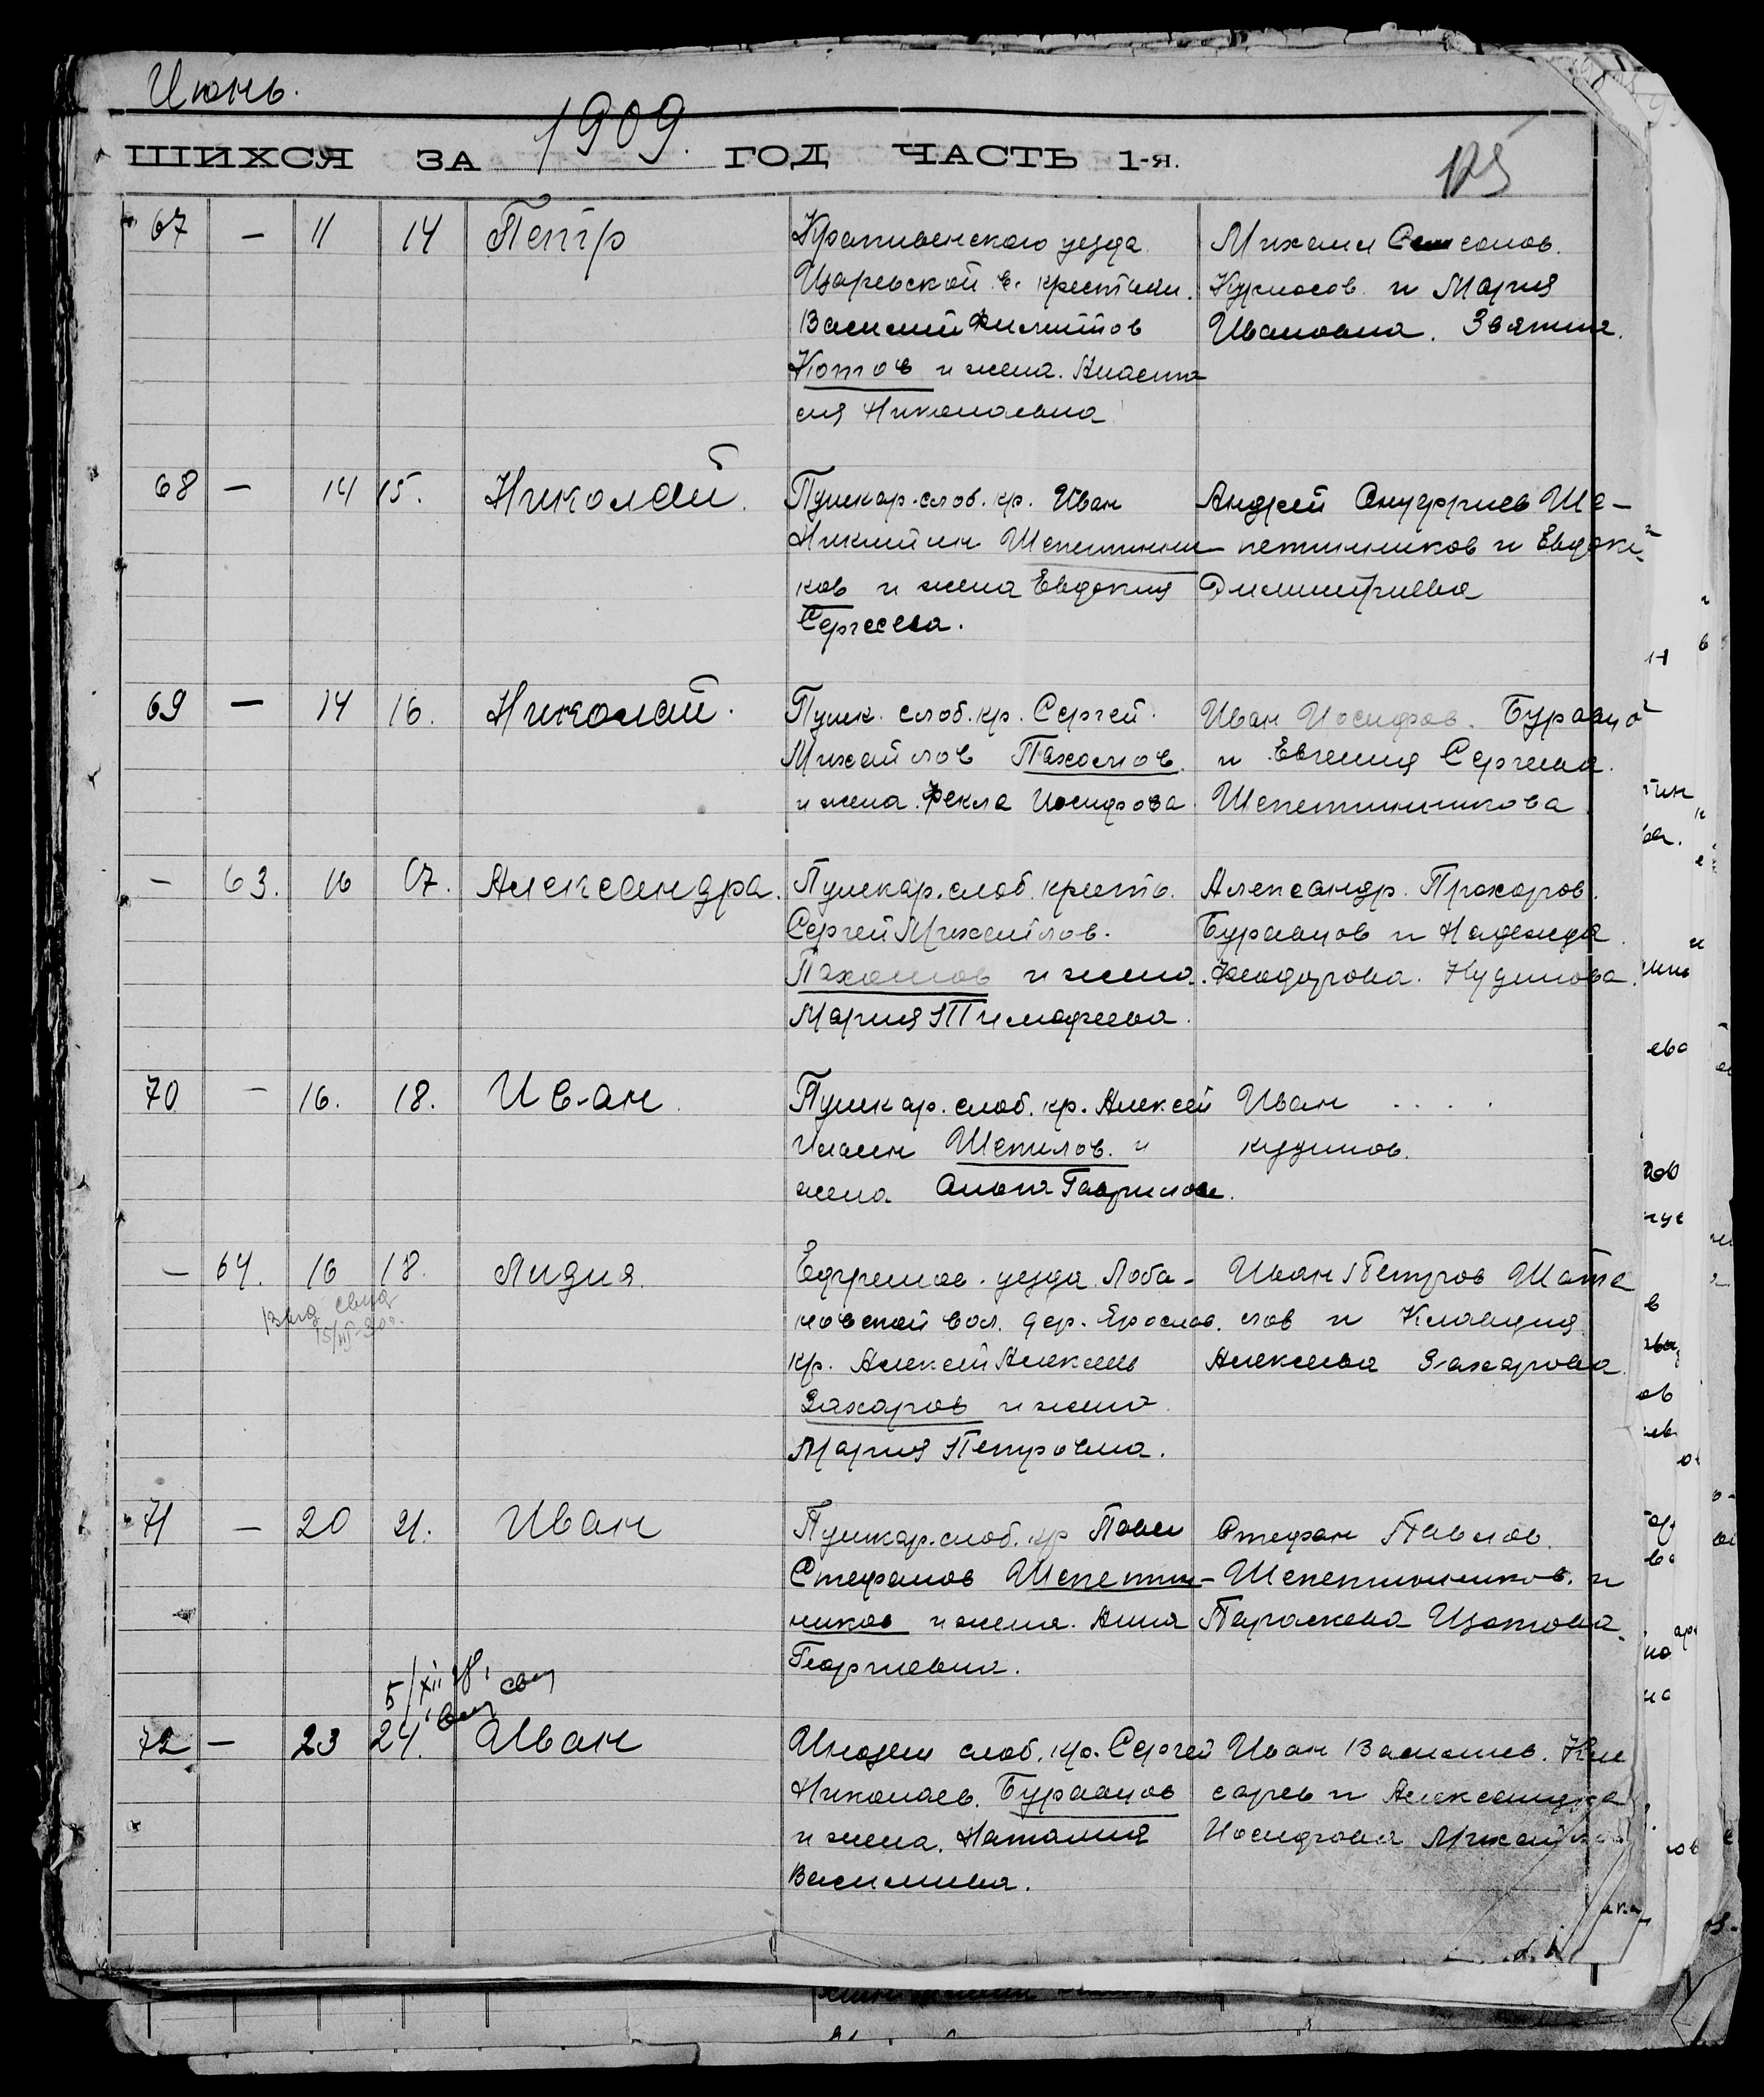 Июнь.
ШИХСЯ ЗА 1909. ГОД ЧАСТЬ 1-я.
67 — 11 14 Петр
Крапивенского уезда
Царевской в. крестьян.
Василий Филиппов
Котов и жена. Анаста
сия Николаевна
Михаил Самсонов.
Курносов и Мария
Ивановна. Звягина.
68 — 14 15. Николай.
Пушкар. слоб. кр. Иван
Никитин Шепетинни
ков и жена Евдокия
Сергеева.
Андрей Онуфриев Ше-
петинников и Евдоки
Димитриева
69 — 14 16. Николай.
Пушк. слоб. кр. Сергей
Михайлов Пахомов
и жена. Фекла Иосифова
Иван Иосифов.
и Евгения Сергеева.
Шепетинникова
— 63. 16 17. Александра.
Пушкар. слоб. крест.
Сергей Михайлов.
Пахомов и жена.
Мария Тимофеева.
Александр. Прохоров.
Бурцов и Надежда
Феодорова. Кудинова.
70 — 16. 18. Иван
Пушкар. слоб. кр. Алексей
Шепилов. и
жена Гаврилов.
Иван . . . .
кудинов.
— 64. 16 18. Лидия.
Ефремов. уезда Лоба-
новской вол. дер. Ярослав.
кр. Алексей Алексеев
Захаров и жена
Мария Петровна.
Иван Петров Шата
лов и Клавдия
Алексеева Захарова
71 — 20 21. Иван
Пушкар. слоб. кр Павел
Стефанов Шепетин-
ников и жена. Анна
Георгиевна.
Стефан Павлов.
Шепетинников. и
Параскева Изотова.
5/XII 28.
72 — 23 24. Иван
слоб. кр. Сергей
Николаев. Бурцов
и жена. Наталия
Васильева.
Иван Васильев.
сарев и Александра
Иосифова